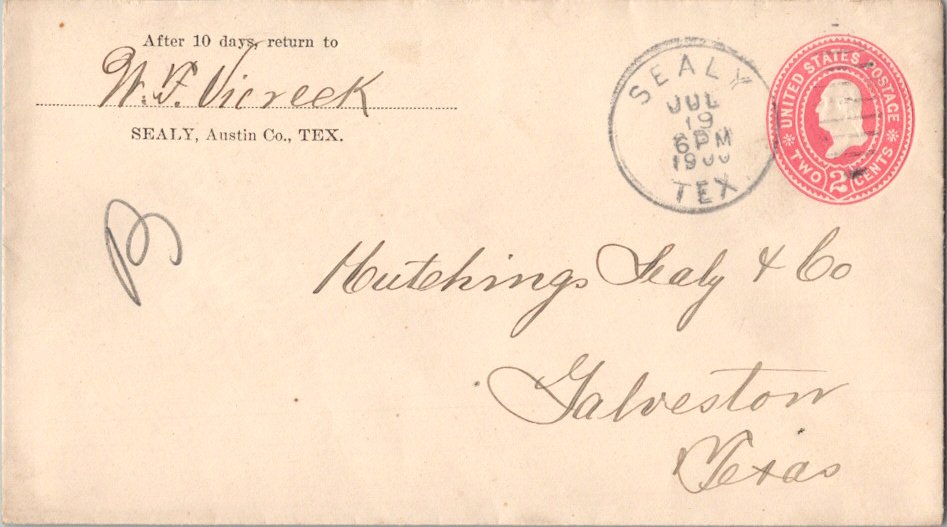 After 10 days, return to
W. F. Viereck
SEALY, Austin Co., TEX.
SEALY
JUL
19
6 PM
1900
TEX
UNITED STATES POSTAGE
TWO 2 CENTS
Hutchings Sealy & Co
Galveston
Texas